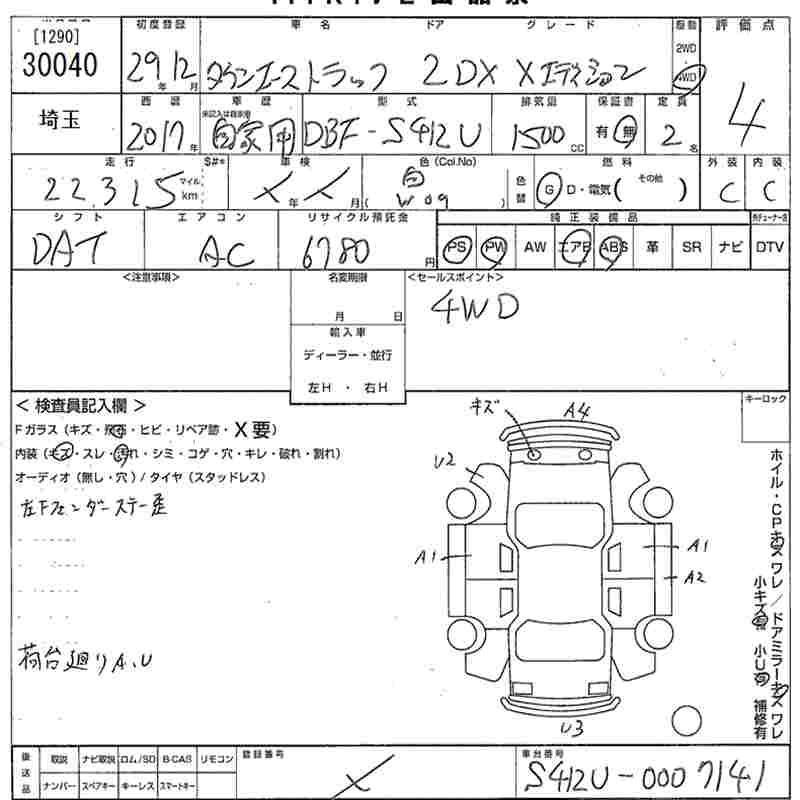 [1290]
30040
初度登録 車名 ドア グレード 駆動 評価点
29年12月 タウンエーストラック 2 DX Xエディション 2WD 4WD 4
埼玉
西暦 車歴 型式 排気量 保証書 定員
2017年 未記入は自家用 自家用 DBF-S412U 1500cc 有・無 2名
走行 S#* 車検 色(Col.No) 燃料 外装 内装
22,315 マイル km ×年×月 ( 白 W09 ) 色替 G D・電気( その他 ) C C
シフト エアコン リサイクル預託金 純正装備品
DAT AC 6780円 PS PW AW エアB ABS 革 SR ナビ DTV
<注意事項> 名変期限 <セールスポイント>
月 日 4WD
輸入車
ディーラー・並行
左H ・ 右H
キーロック
< 検査員記入欄 >
Fガラス (キズ・飛石・ヒビ・リペア跡・X要)
内装 (キズ・スレ・汚れ・シミ・コゲ・穴・キレ・破れ・割れ)
オーディオ (無し・穴) / タイヤ (スタッドレス)
左Fフェンダーステー歪
荷台廻りA、U
キズ A4
U2
A1 A1
A2
U3
ホイル・CPキズ ワレ / ドアミラーキズ ワレ
小キズ有 小U有 補修有
後送品 取説 ナビ取説 ロム/SD B-CAS リモコン 登録番号 車台番号
ナンバー スペアキー キーレス スマートキー × S412U-0007141